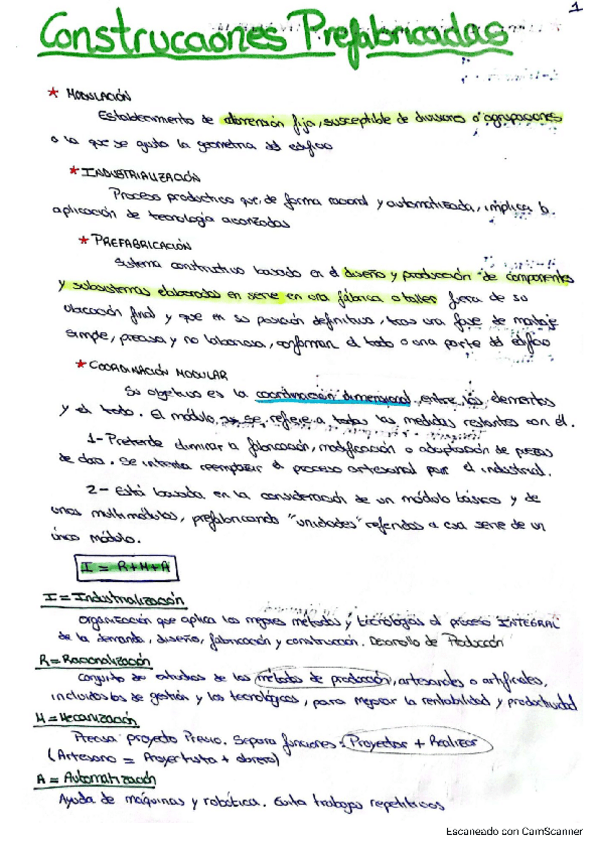 1
Construcciones Prefabricadas
* MODULACIÓN
Establecimiento de dimensión fija, susceptible de divisiones o agrupaciones
a la que se ajusta la geometría del edificio
* INDUSTRIALIZACIÓN
Proceso productivo que, de forma racional y automatizada, implica la
aplicación de tecnología avanzadas
* PREFABRICACIÓN
Sistema constructivo basado en el diseño y producción de componentes
y subsistemas elaborados en serie en una fábrica o taller fuera de su
ubicación final y que en su posición definitiva, tras una fase de montaje
simple, precisa y no laboriosa, conforman el todo o una parte del edificio
* COORDINACIÓN MODULAR
Su objetivo es la coordinación dimensional entre los elementos
y el todo. El módulo se refiere a todas las medidas restantes con él.
1- Pretende eliminar la fabricación, modificación o adaptación de piezas
de obra. Se intenta reemplazar el proceso artesanal por el industrial.
2- Está basada en la consideración de un módulo básico y de
unos multimódulos, prefabricando "unidades" referidas a una serie de un
único módulo.
I = R+M+A
I = Industrialización
Organización que aplica los mejores métodos y tecnologías al proceso INTEGRAL
de la demanda, diseño, fabricación y construcción. Desarrollo de Producción
R = Racionalización
Conjunto de estudios de los métodos de producción, artesanales o artificiales,
incluidos los de gestión y los tecnológicos, para mejorar la rentabilidad y productividad
M = Mecanización
Precisa proyecto Previo. Separa funciones: Proyectar + Realizar
(Artesano = Proyectista + obrero)
A = Automatización
Ayuda de máquinas y robótica. Evita trabajos repetitivos
Escaneado con CamScanner